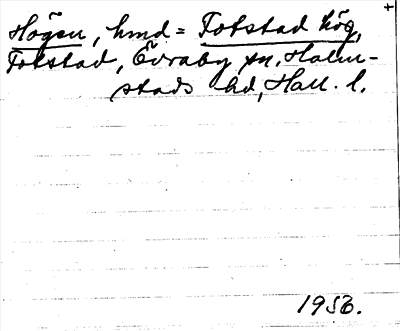 Högen, hmd = Totstad hög,
Totstad, Övraby sn, Halm-
stads hd, Hall. l.
1956.